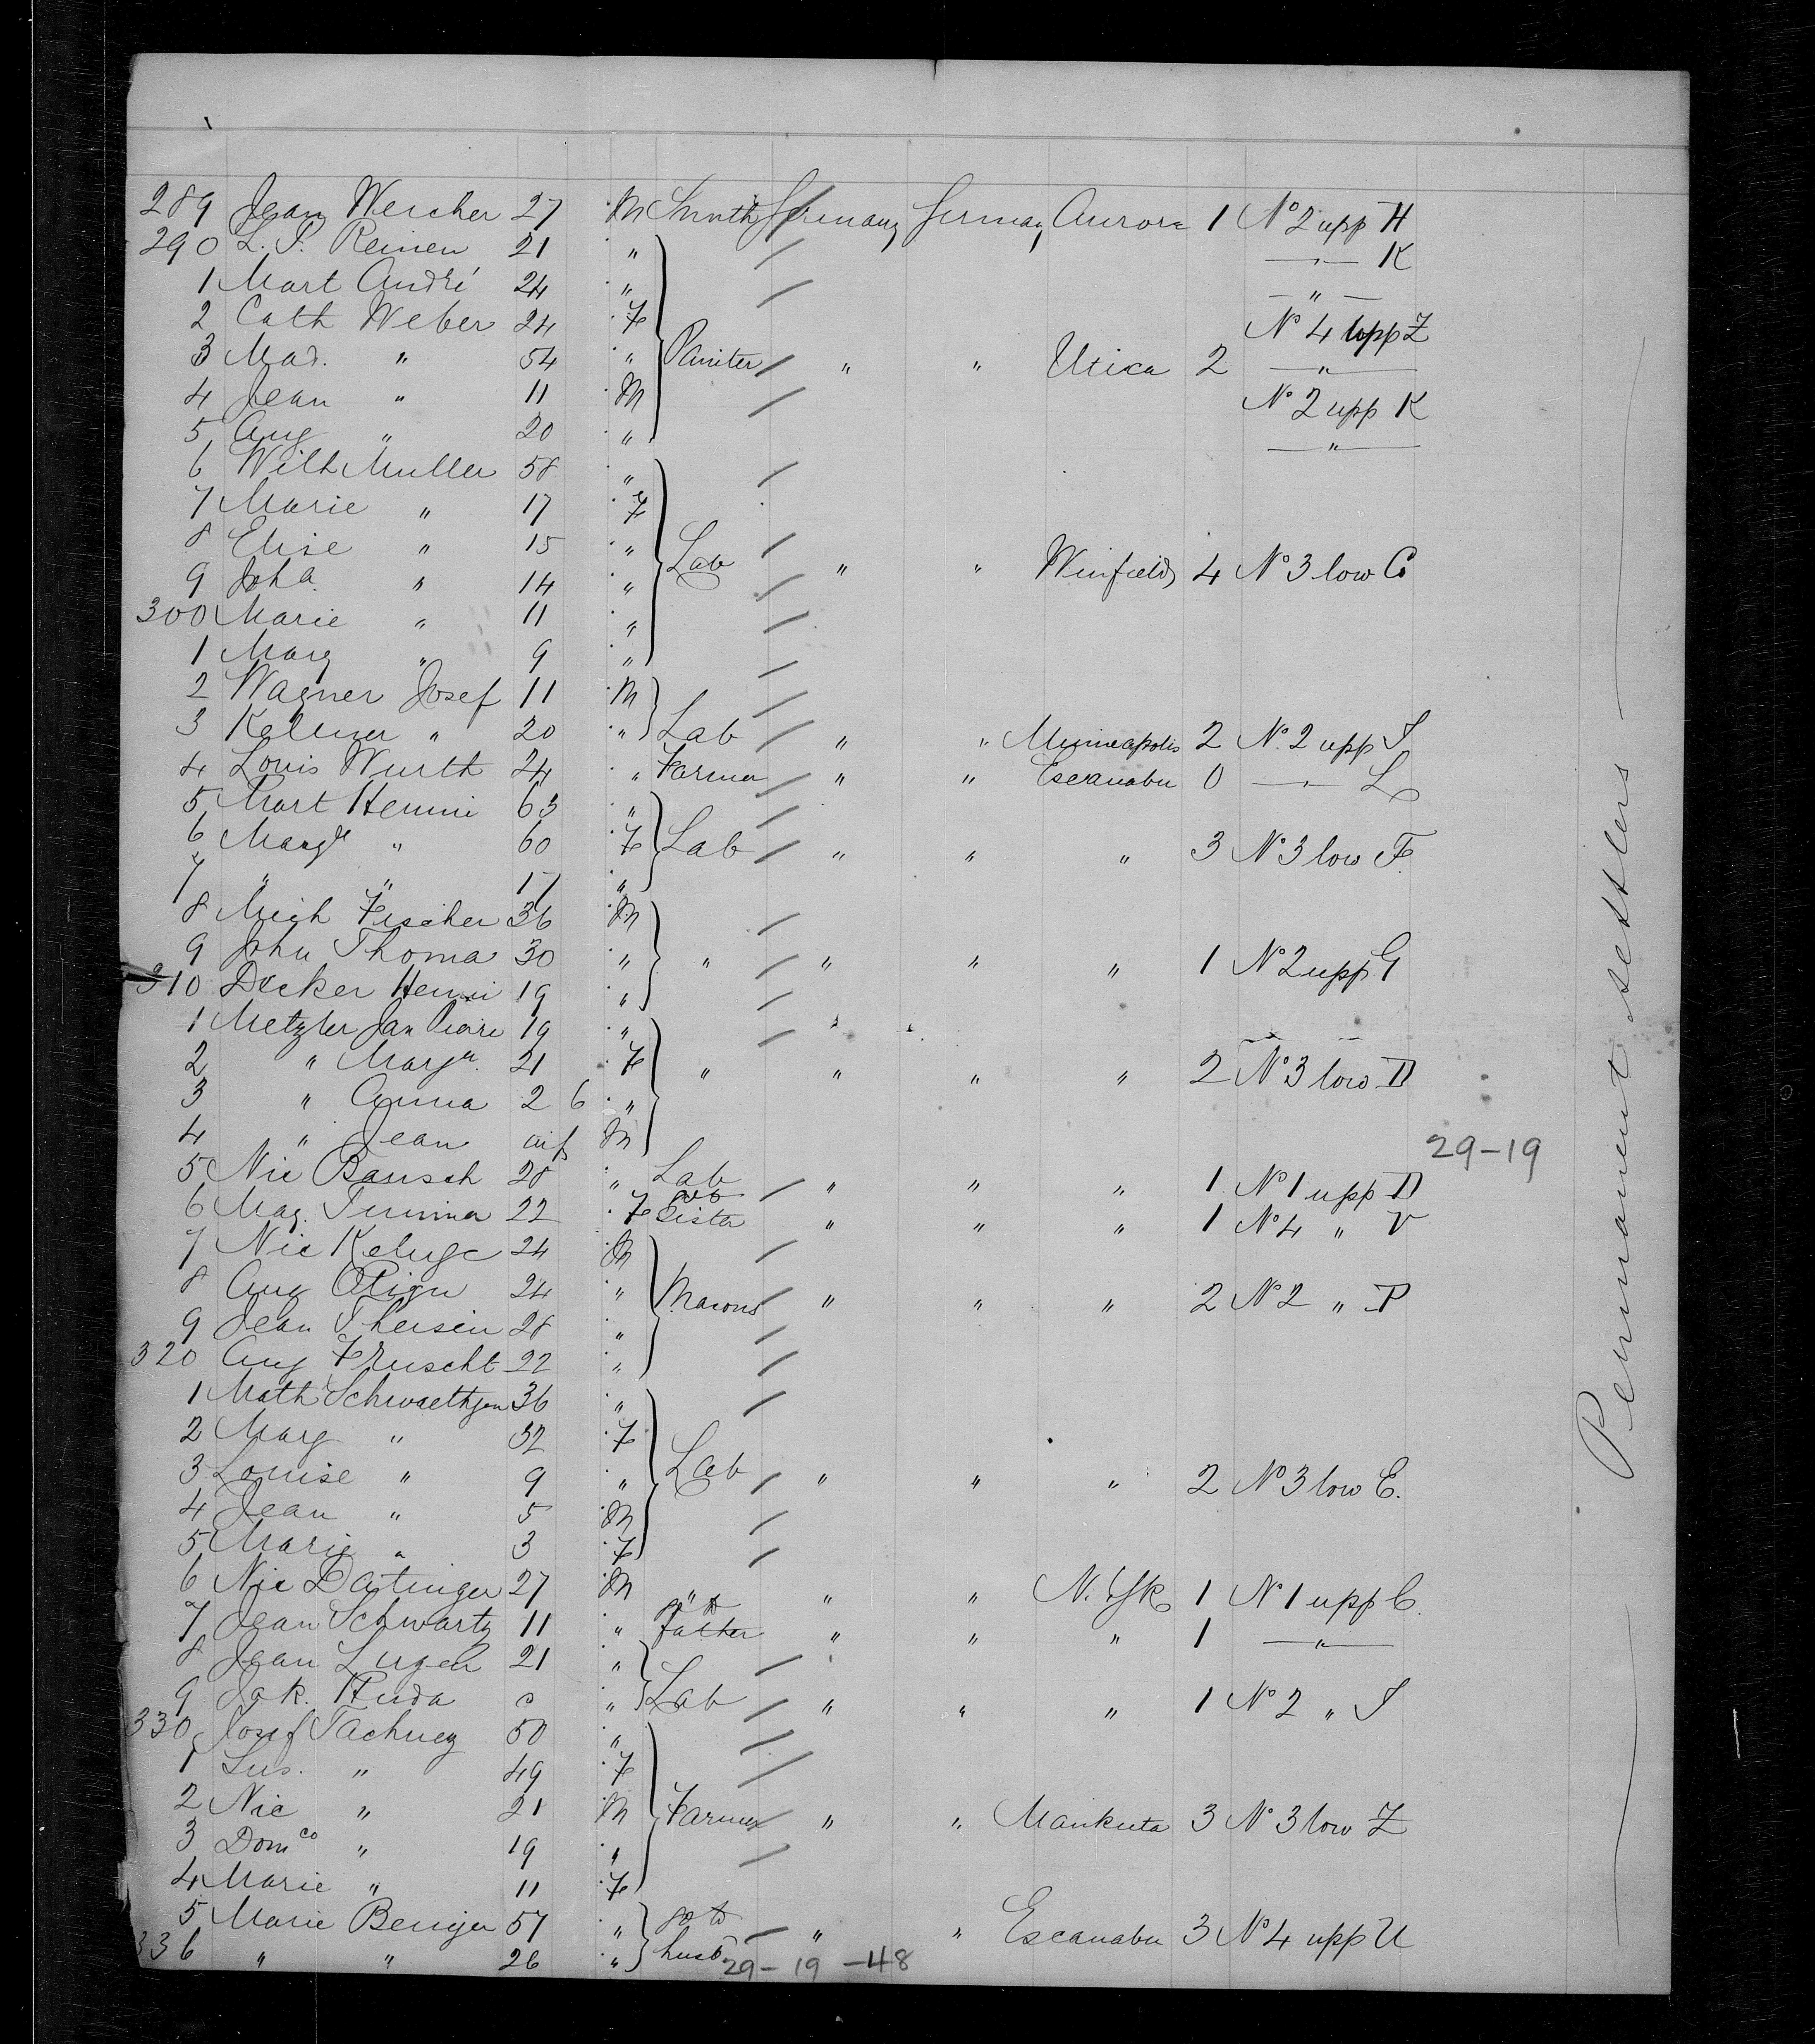 289 Jean Wercher 27 M Smith Germany Germany Aurora 1 No 2 upp H
290 L. P. Reinen 21 " —"— K
1 Mart André 24 " —"—
2 Cath Weber 24 F No 4 upp Z
3 Mad. " 54 " Painter " " Utica 2 —"—
4 Jean " 11 M No 2 upp K
5 Aug " 20 " —"—
6 Wilh Muller 58 "
7 Marie " 17 F
8 Elise " 15 " Lab " " Winfield 4 No 3 low C
9 Joha " 14 "
300 Marie " 11 "
1 Marg " 9 "
2 Wagner Josef 11 M
3 Kellner " 20 " Lab " " Minneapolis 2 No. 2 upp I
4 Louis Wurth 24 " Farmer " " Escanaba 0 —"— L
5 Mart Hemmi 63 "
6 Margt " 60 F Lab " " " 3 No 3 low F.
7 " " 17 "
8 Mich Fischer 36 M
9 John Thoma 30 " " " " " 1 No 2 upp G
310 Decker Henri 19 "
1 Metzler Jan Piere 19 "
2 " Marga. 21 F " " " " 2 No 3 low D
3 " Anna 2 6 "
4 " Jean inf M
29-19
5 Nic Bausch 28 " Lab " " " 1 No 1 upp D
6 Mag. Timmer 22 F Sister " " " 1 No 4 " V
7 Nic Keluge 24 M
8 Aug 24 " Masons " " " 2 No 2 " P
9 Jean Theisen 28 "
320 Aug Fruscht 22 "
1 Math Schwaethgen 36 "
2 Marg " 32 F
3 Louise " 9 " Lab " " " 2 No 3 low E.
4 Jean " 5 M
5 Marie " 3 F
6 Nic Datinger 27 M " " " N. Yk 1 No 1 upp C.
7 Jean Schwartz 11 " to father " " " 1 —"—
8 Jean Lugen 21 "
9 Jak. Huda " Lab " " " 1 No 2 " I
330 Josef Tachney 50 "
1 Sus. " 49 F
2 Nic " 21 M Farmer " " Mankuta 3 No 3 low Z
3 Domco " 19 "
4 Marie " 11 F
5 Marie Berniger 57 " go to " " Escanaba 3 No 4 upp U
336 " " 26 " husb
29-19-48
Permanent settlers